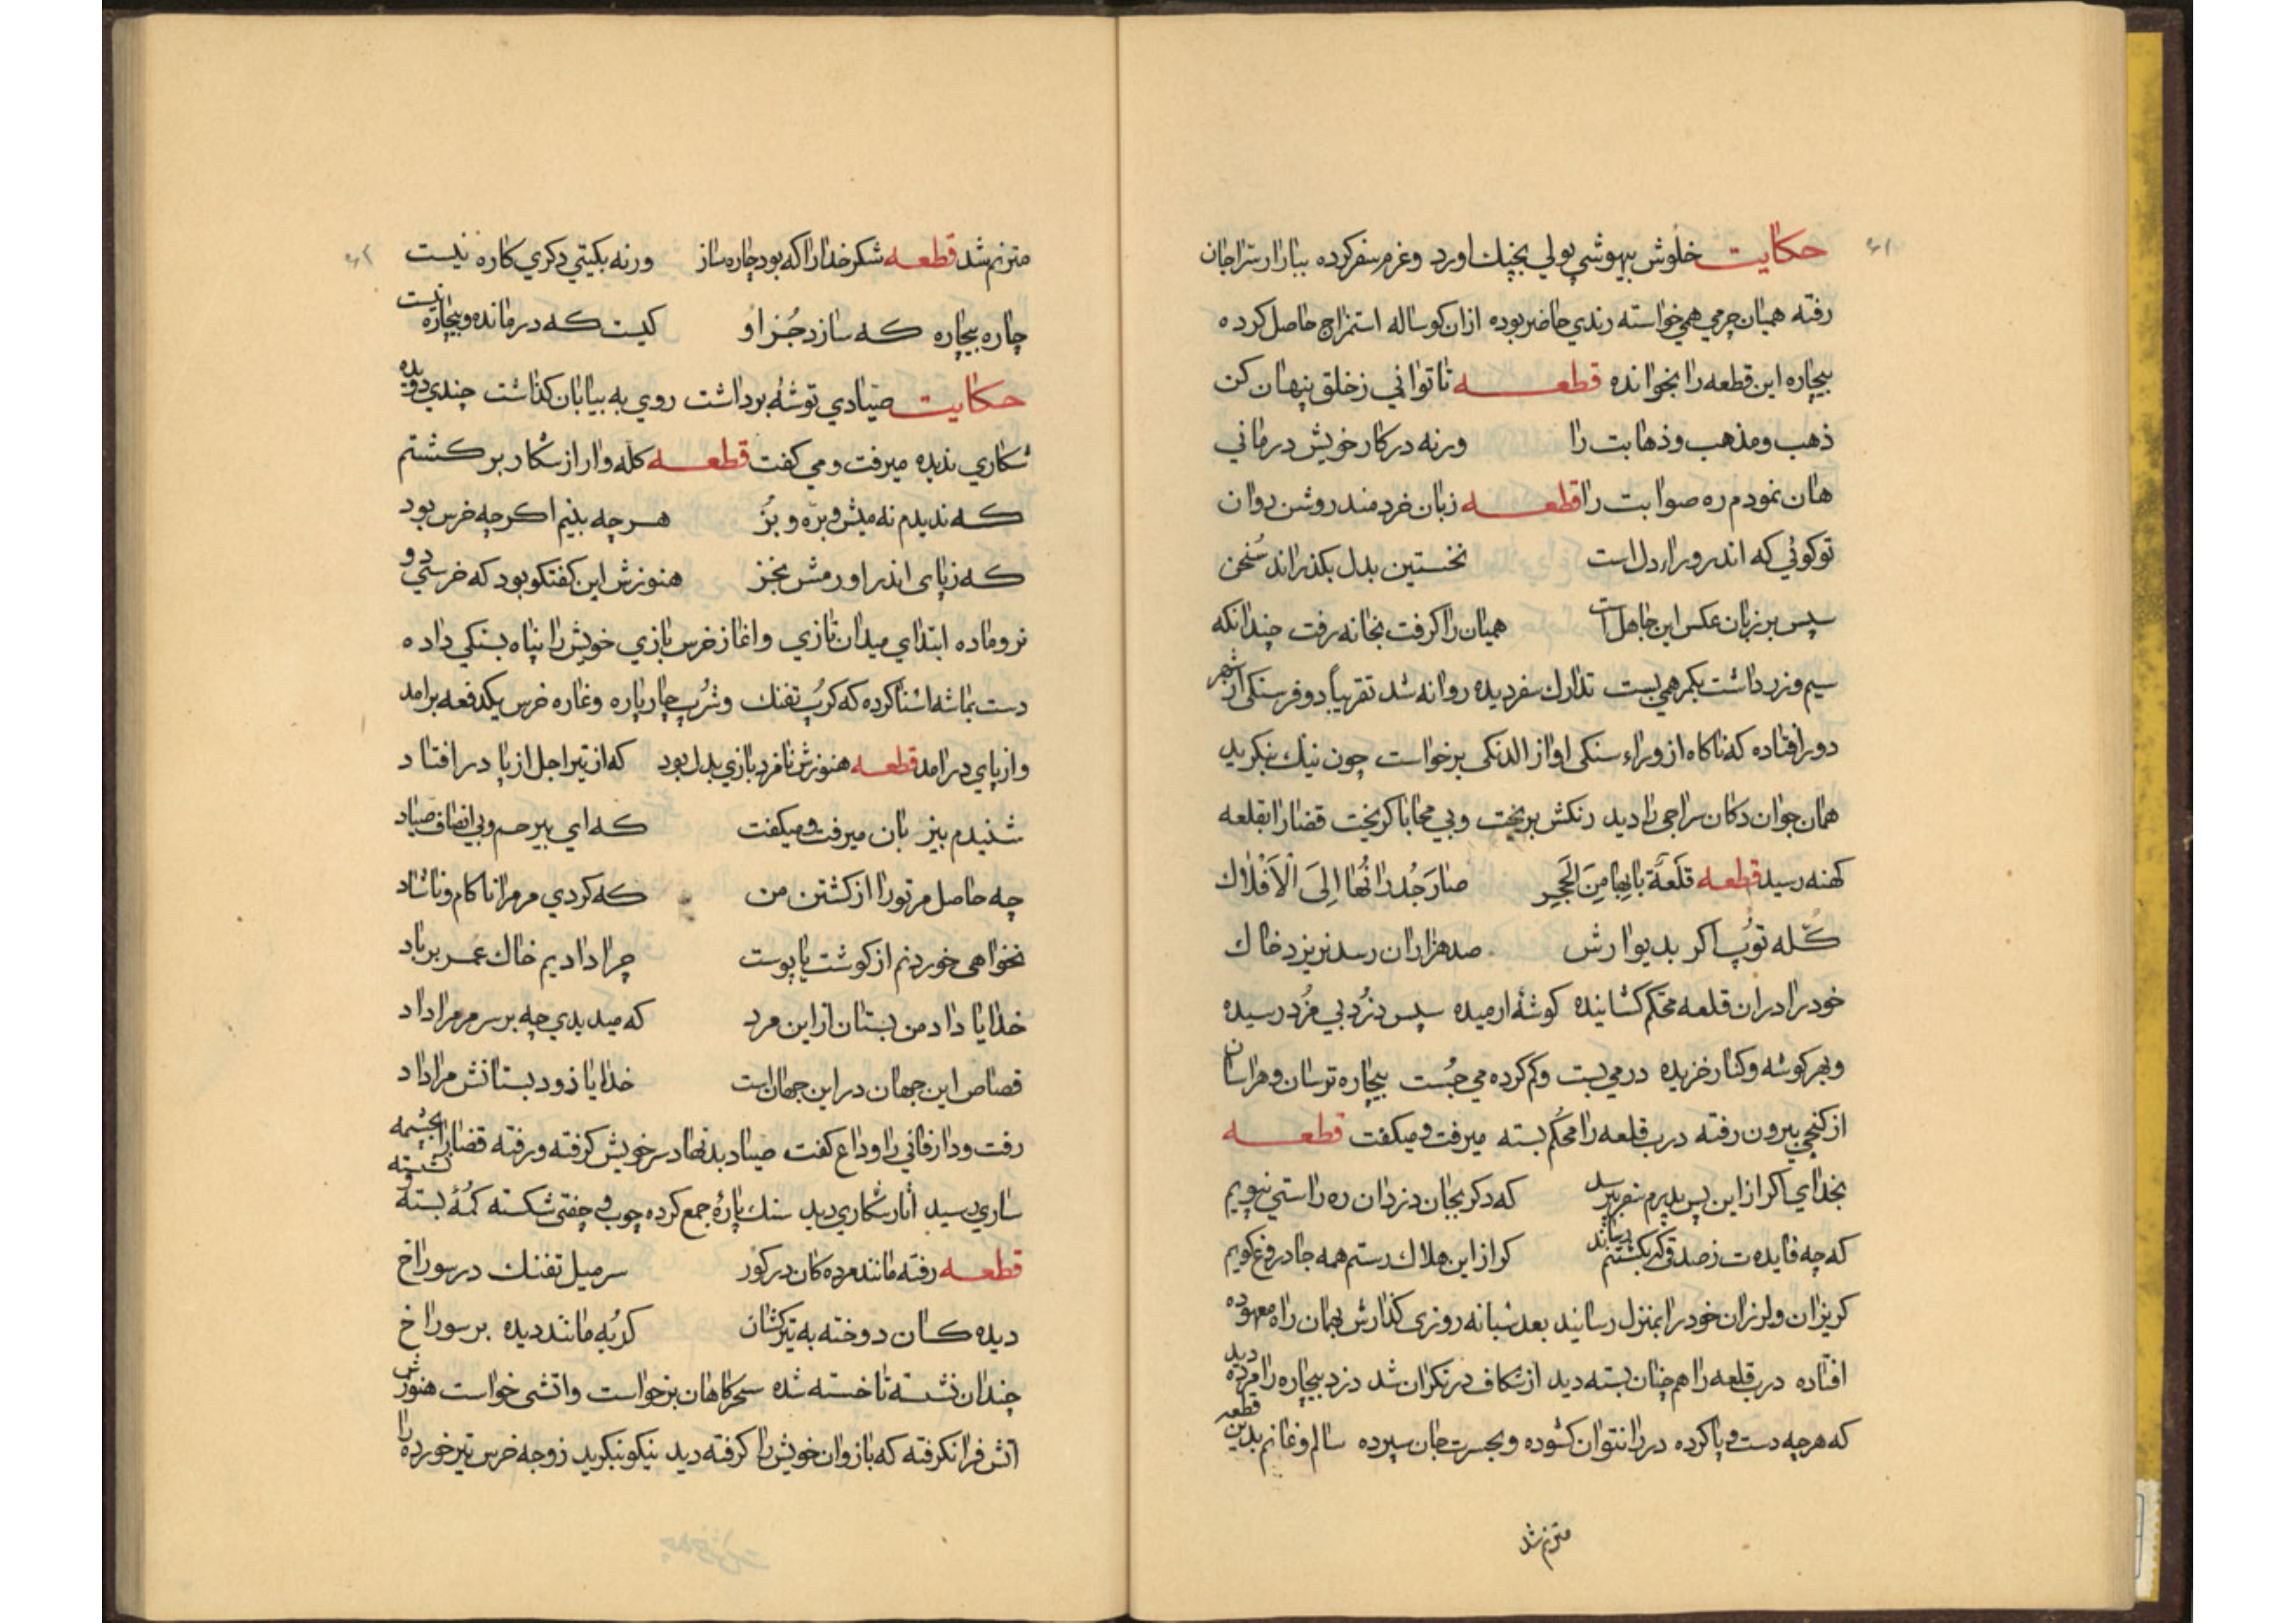 حکایت خلوش بیهوشی پولی بچنك اورد وعزم سفر کرده ببازار سراجان
رفته همیان چرمی همی خواسته رندی حاضر بوده ازان کوساله استمزاج حاصل کرده
بیچاره این قطعه را بخوانده قطعه تا توانی ز خلق پنهان کن
ذهب ومذهب وذهابت را ورنه در کار خویش درمانی
هان نمودم ره صوابت را قطعه زبان خردمند روشن روان
تو کوئی که اندر وراء دل است نخستین بدل بکذراند سُخن
سپس بر زبان عکس این جاهل است همیان را کرفت بخانه رفت چندانکه
سیم وزر داشت بکمر همی بست تدارك سفر دیده روانه شد تقریباً دو فرسنکی از شهر
دور افتاده که ناکاه از وراء سنکی اواز الدنکی برخواست چون نیك بنکرید
همان جوان دکان سراجی را دید رنکش بریخت وبی محابا کریخت قضا را بقلعه
کهنه رسید قطعه قلعَةٌ بابها مِنَ الحَجَرِ صارَ جُدرانُها اِلَی الْاَفْلاك
کُله توُپ اکر بدیوارش صد هزاران رسد نریزد خاك
خود را دران قلعه محکم کشانیده کوشهٔ ارمیده سپس دزد بی مُزد رسیده
وبهر کوشه وکنار خزیده در می بست وکم کرده می جُست بیچاره ترسان وهراسان
از کنجی بیرون رفته درب قلعه را محکم بسته میرفت ومیکفت قطعه
بخدای اکر ازاین پس پدرم بپرسد که دکر بجان دزدان ره راستی نپویم
که چه فایده ت ز صدق کر از این هلاك رستم همه جا دروغ کویم
کریزان ولرزان خود را بمنزل رسانید بعد شبانه روزی کذارش بهمان راه معهوده
افتاده درب قلعه را هم چنان بسته دید از شکاف در نکران شد دزد بیچاره را مرده دید
که هر چه دست وپا کرده در را نتوان کشوده وبحسرت جان سپرده سالم وغانم بدین قطعه
مترنم شد
مترنم شد قطعه شکر خدا را که بود چاره ساز ورنه بکیتی دکری کاره نیست
چاره بیچاره که سازد جُز او کیست که درمانده وبیچاره نیست
حکایت صیّادی توشهٔ برداشت روی به بیابان کذاشت چندی دویده
شکاری ندیده میرفت ومی کفت قطعه کله وار از شکار برکشتم
که ندیدم نه میش وبرّه و بُز هر چه بینم اکر چه خرس بود
که ز پای اندر اورمش بخز هنوزش این کفتکو بود که خرسی دو
نر وماده ابتدای میدان تازی واغاز خرس بازی خویش را پناه بسنکی داده
دست بماشه اشنا کرده که کرُپ تفنك وشرُپ چارپاره وغاره خرس یکدفعه برامد
واز پای درامد قطعه هنوزش نافرد بازی بدل بود که از تیر اجل از پا درافتاد
شنیدم بیز بان میرفت ومیکفت که ای بیرحم وبی انصاف صیاد
چه حاصل مر تورا از کشتن من که کردی مر مرا ناکام وناشاد
نخواهی خوردنم از کوشت یا پوست چرا دادیم خاك عمر بر باد
خدایا داد من بستان از این مرد که میدیدی چه بر سر مر مرا داد
قصاص این جهان در این جهان است خدایا زود بستانش مرا داد
رفت ودار فانی را وداع کفت صیاد بدنهاد سر خویش کرفته ورفته قضا را بچشمه
ساری رسید اثار شکاری دید سنك پارهٔ جمع کرده چوب وچفتی شکسته کمُهٔ بسته ونشسته
قطعه رفته مانند مرده کان در کور سر میل تفنك در سوراخ
دیده کان دوخته به تیرکشان کربُه مانند دیده بر سوراخ
چندان نشسته تا خسته شده سحرکاهان برخواست واتشی خواست هنوزش
اتش فرا نکرفته که بازوان خویش را کرفته دید نیکو بنکرید زوجه خرس تیر خورده را